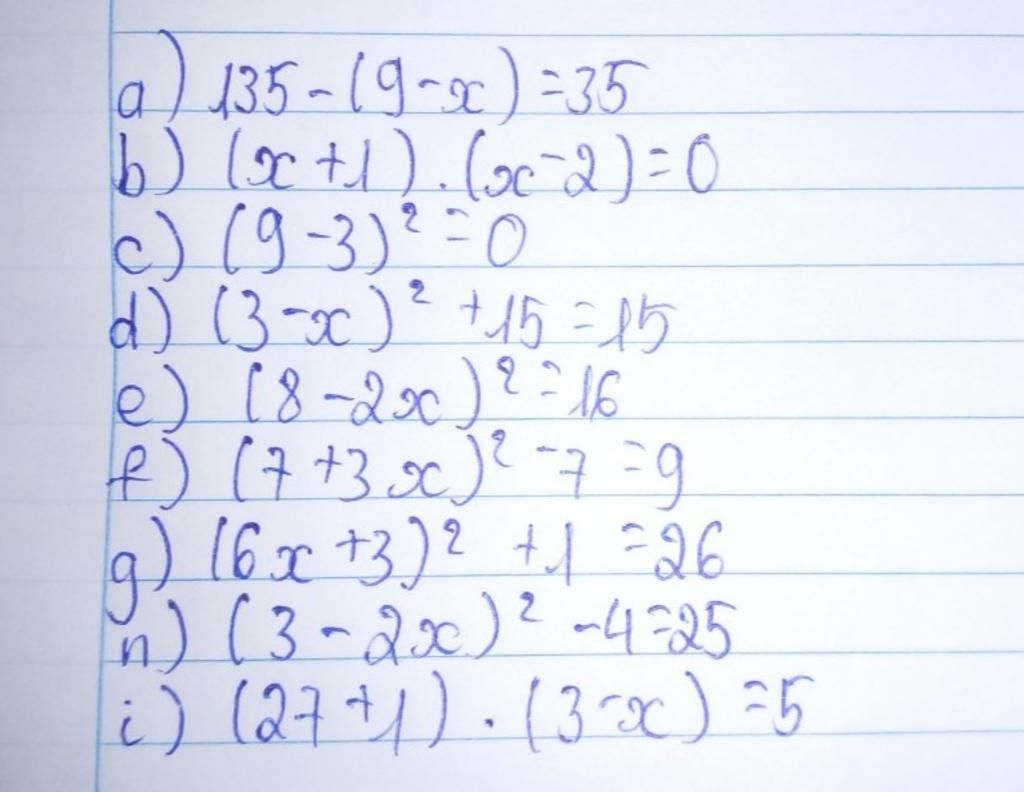 a) 135-(9-x)=35
b) (x+1).(x-2)=0
c) (9-3)²=0
d) (3-x)² +15=15
e) (8-2x)²=16
f) (7+3x)²-7=9
g) (6x+3)² +1=26
h) (3-2x)² -4=25
i) (27+1).(3-x)=5